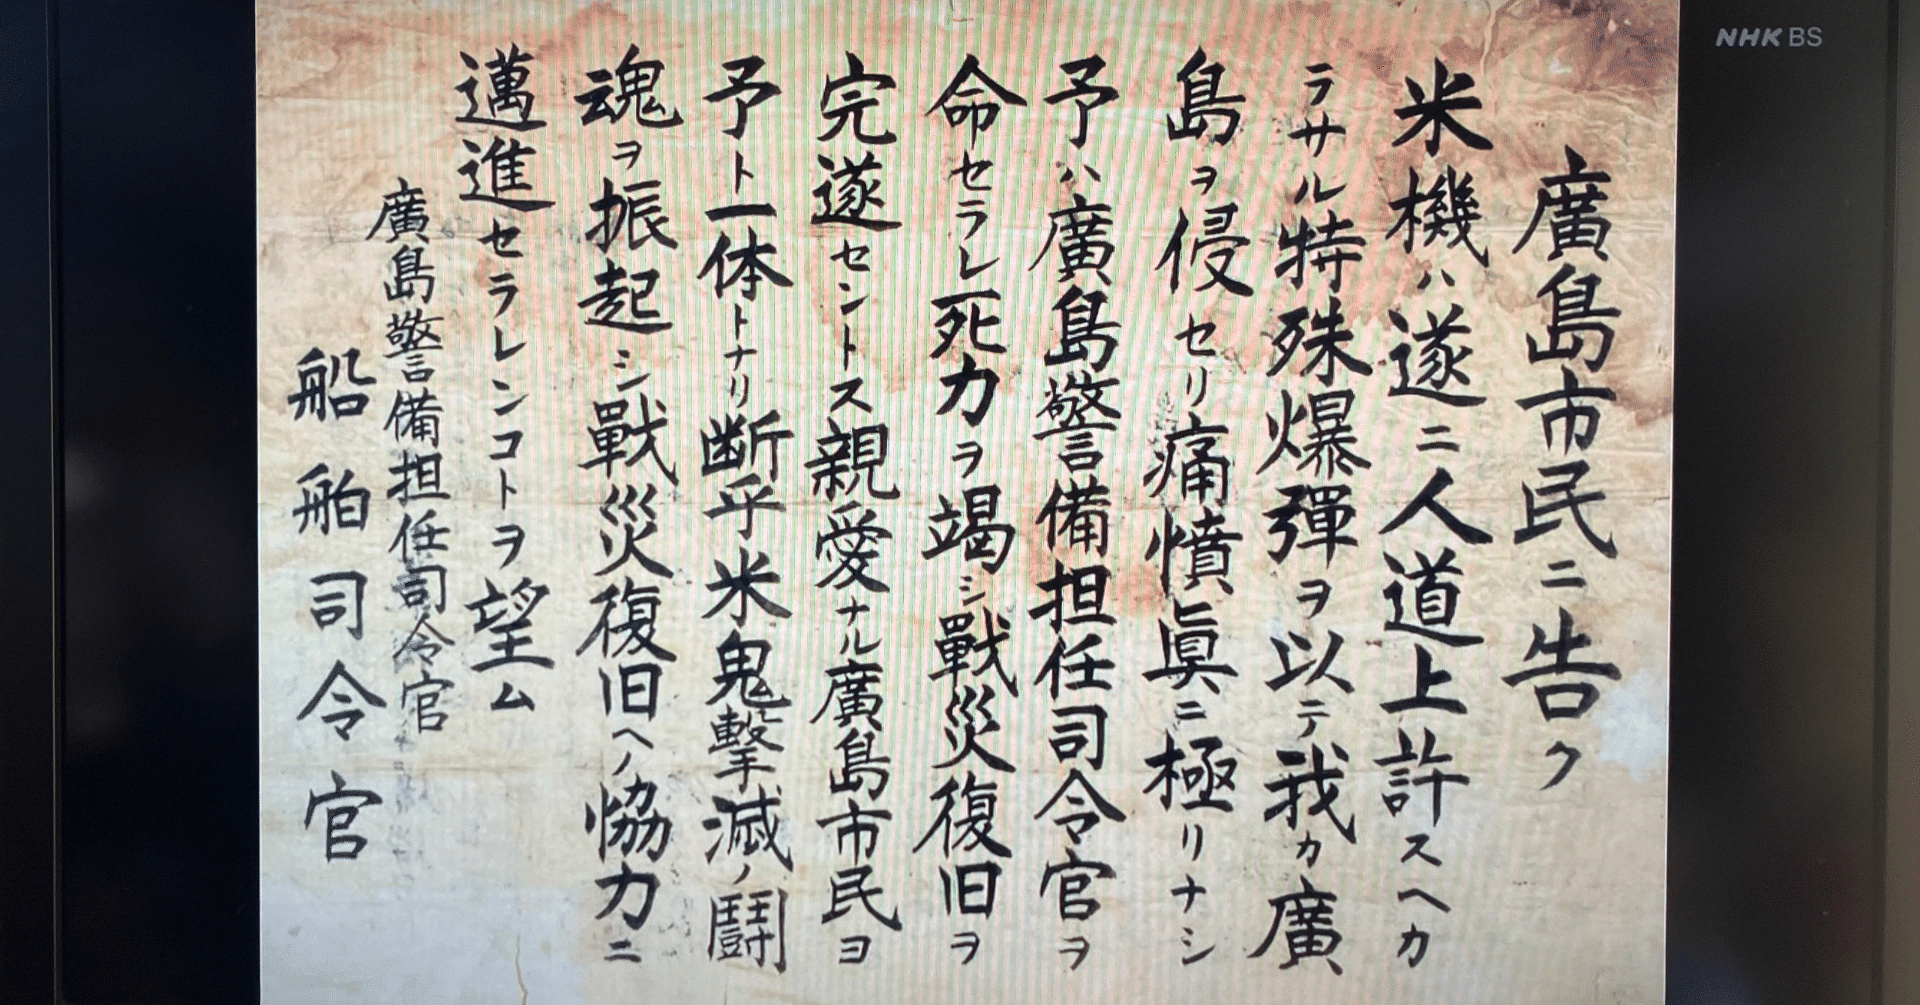 廣島市民ニ告ク
米機ハ遂ニ人道上許スヘカ
ラサル特殊爆彈ヲ以テ我カ廣
島ヲ侵セリ痛憤眞ニ極リナシ
予ハ廣島警備担任司令官ヲ
命セラレ死力ヲ竭シ戰災復旧ヲ
完遂セントス親愛ナル廣島市民ヨ
予ト一体トナリ断乎米鬼撃滅ノ鬪
魂ヲ振起シ戰災復旧ヘノ恊力ニ
邁進セラレンコトヲ望ム
廣島警備担任司令官
船舶司令官
NHK BS